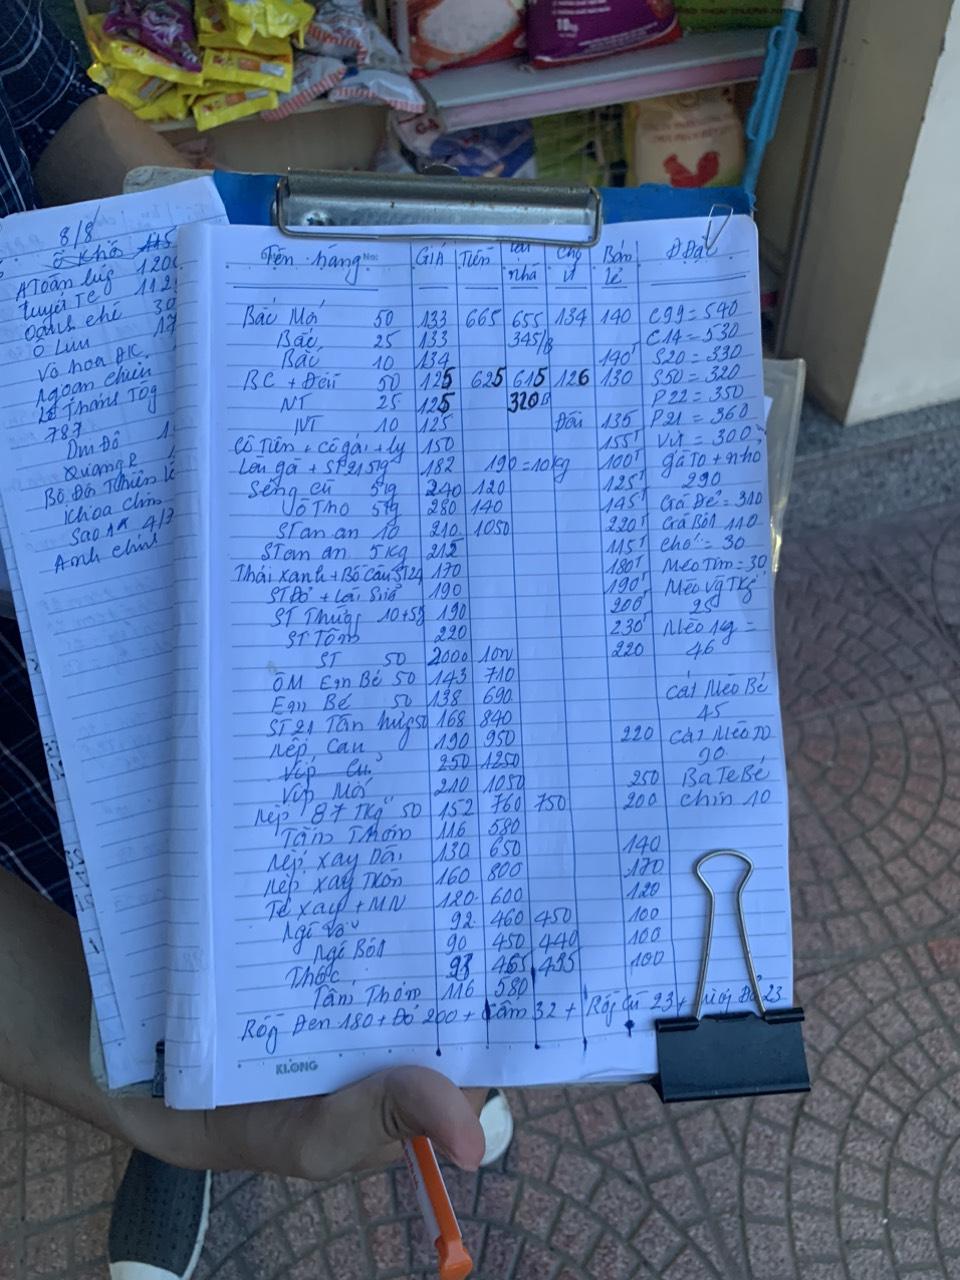 8/8
ô Khôi 115
A Toàn
Tuyết Te 112
Oánh chi 30
Ô Lun 17
Vô hoa ĐK
Ngoan chiến
Lê Thánh Tôg
787
Dm Đô
Quang 2
Bộ Đội Thiên
Khoa Chín
Sao 4/7
Anh chính
Tên hàng No: GIÁ Tiền tại nhà chợ vị Bán lẻ
Bắc Mới 50 133 665 655 134 140 C99 = 540
Bắc 25 133 345/B C14 = 530
Bắc 10 134 140T S20 = 330
BC + Đài 50 125 625 615 126 130 S50 = 320
NT 25 125 320B P22 = 350
NT 10 125 Đài 135 P21 = 360
Cô Tiên + cô gái + Ly 150 155T Vịt = 300
Lài gà + ST21 5kg 182 190 = 10kg 100T gà To + nhỏ
Séng cũ 5kg 240 120 125T 290
Võ Thọ 5kg 280 140 145T Gà Đẻ = 310
ST an an 10 210 1050 220T Gà Bột 110
ST an an 5kg 212 115T chó = 30
Thái xanh + Bồ Câu ST24 170 180T Mèo Tím = 30
ST Đỏ + Lài Sữa 190 190T Mèo Vg 7kg
ST Thúng 10+5g 190 200T 25
ST Tôm 220 230T Mèo 1kg =
ST 50 2000 10N 220 46
ÔM Em Bé 50 143 710
Em Bé 50 138 690 Cát Mèo Bé
ST21 Tấn Hưng 50 168 840 45
Nếp Can 190 950 220 Cát Mèo TO
Víp Cũ 250 1250 90
Víp Mới 210 1050 250 BaTeBé
Nếp 87 TKg 50 152 760 750 200 chín 10
Tấm Thơm 116 580
Nếp xay Dài 130 650 140
Nếp xay Tròn 160 800 170
Tẻ xay + MN 120 600 120
Ngô Vỡ 92 460 450 100
Ngô Bột 90 450 440 100
Thóc 93 465 435 100
Tấm Thơm 116 580
Rồg Đen 180 + Đỏ 200 + Cẩm 32 + Rồg Cũ 23 + Đỏ 23
KLONG
10kg